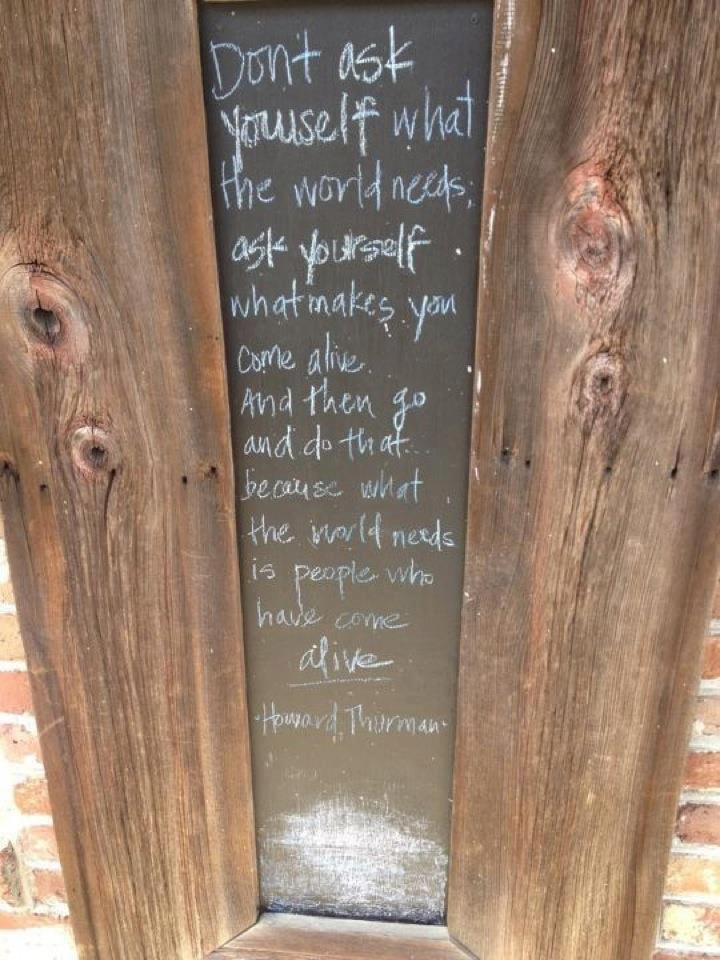 Dont ask
yourself what
the world needs;
ask yourself
what makes you
come alive.
And then go
and do that...
because what
the world needs
is people who
have come
alive
·Howard Thurman·